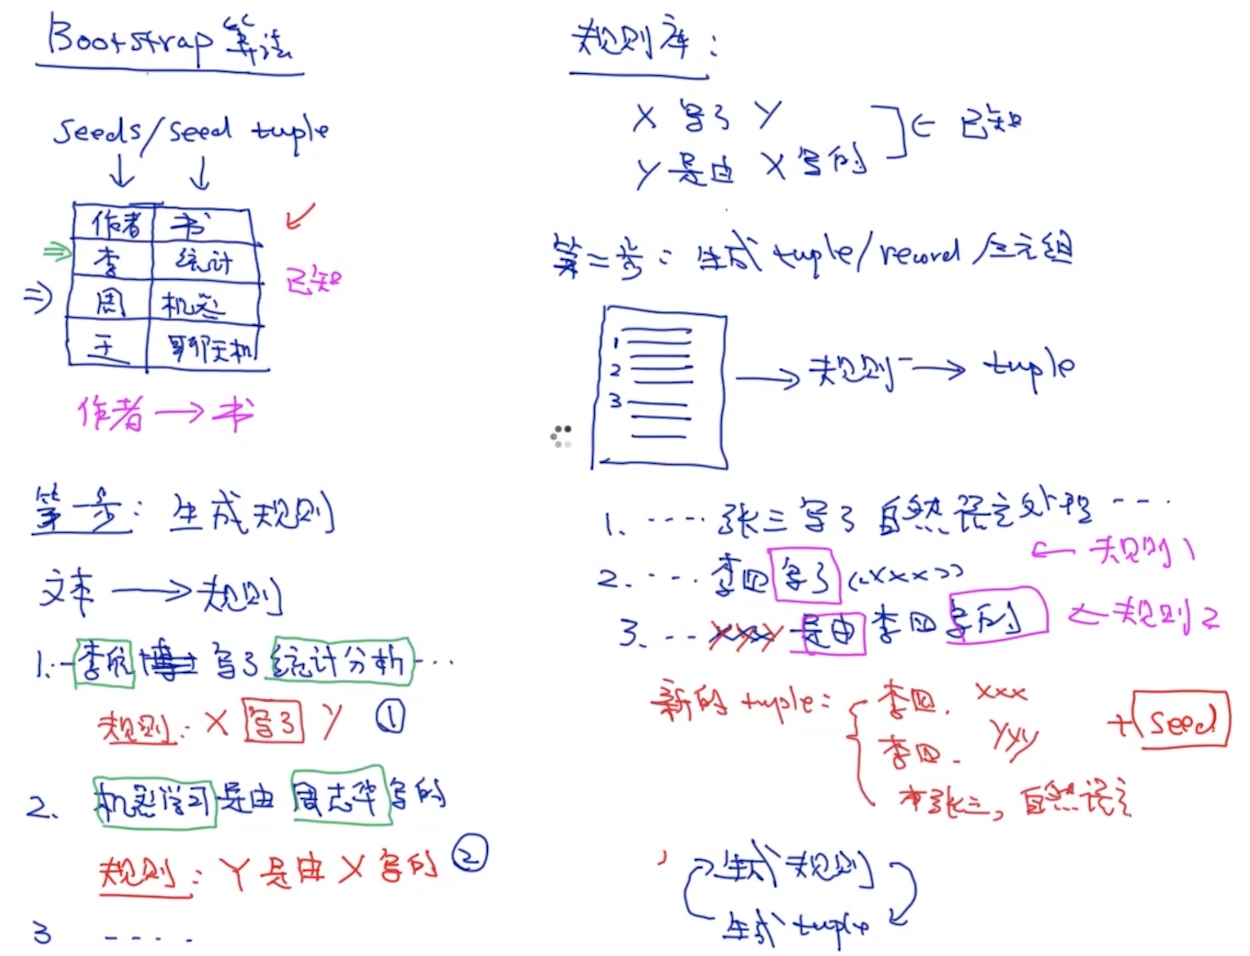 Bootstrap 算法
seeds/seed tuple
作者 书
李 统计
周 机器
王 聊天机
已知
作者 → 书
第一步: 生成规则
文本 → 规则
1. 李航 博士 写了 统计分析 ...
规则: X 写了 Y ①
2. 机器学习 是由 周志华 写的
规则: Y 是由 X 写的 ②
3 ----
规则库:
X 写了 Y
Y 是由 X 写的
← 已知
第二步: 生成 tuple/record/三元组
1
2
3
→ 规则 → tuple
1. ..... 张三写了 自然语言处理 ....
2. .... 李四 写了 《xxx》 ← 规则1
3. .. YYY 是由 李四 写的 ← 规则2
新的 tuple: 李四. xxx
李四. YYY
张三, 自然语言
+ Seed
生成规则
生成 tuple